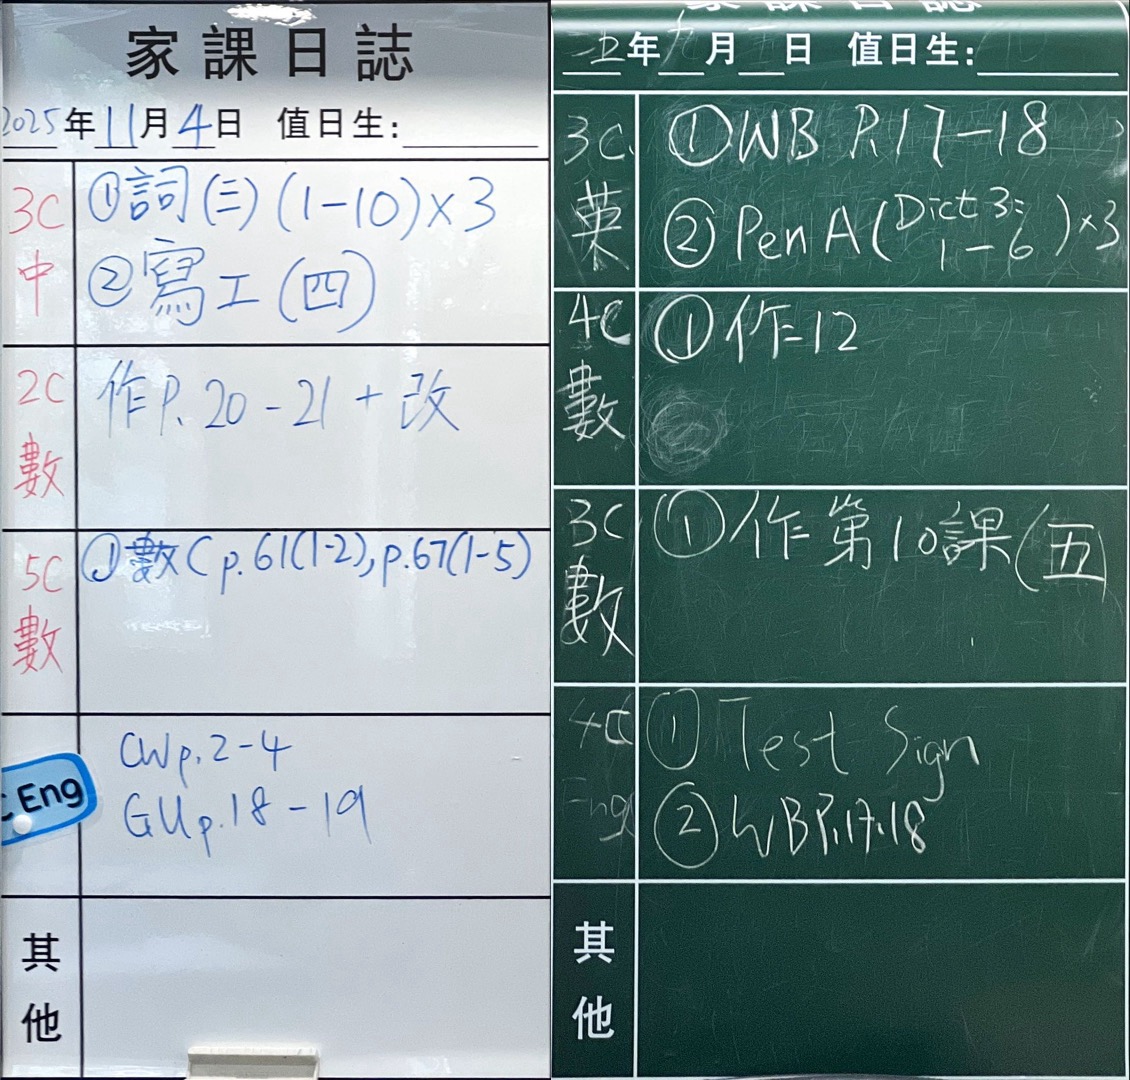 家課日誌
2025年11月4日 值日生:
3C
中
①詞(三)(1-10)×3
②寫工(四)
2C
數
作P.20-21+改
5C
數
①數C p.61(1-2),p.67(1-5)
C Eng
CWp.2-4
GUp.18-19
其
他
家課日誌
二五年九月日 值日生:
3C
英
①WB P.17-18
②Pen A(Dict 3: 1-6)×3
4C
數
①作=12
3C
數
①作第10課(五)
4C
Eng
①Test Sign
②WBP.17.18
其
他